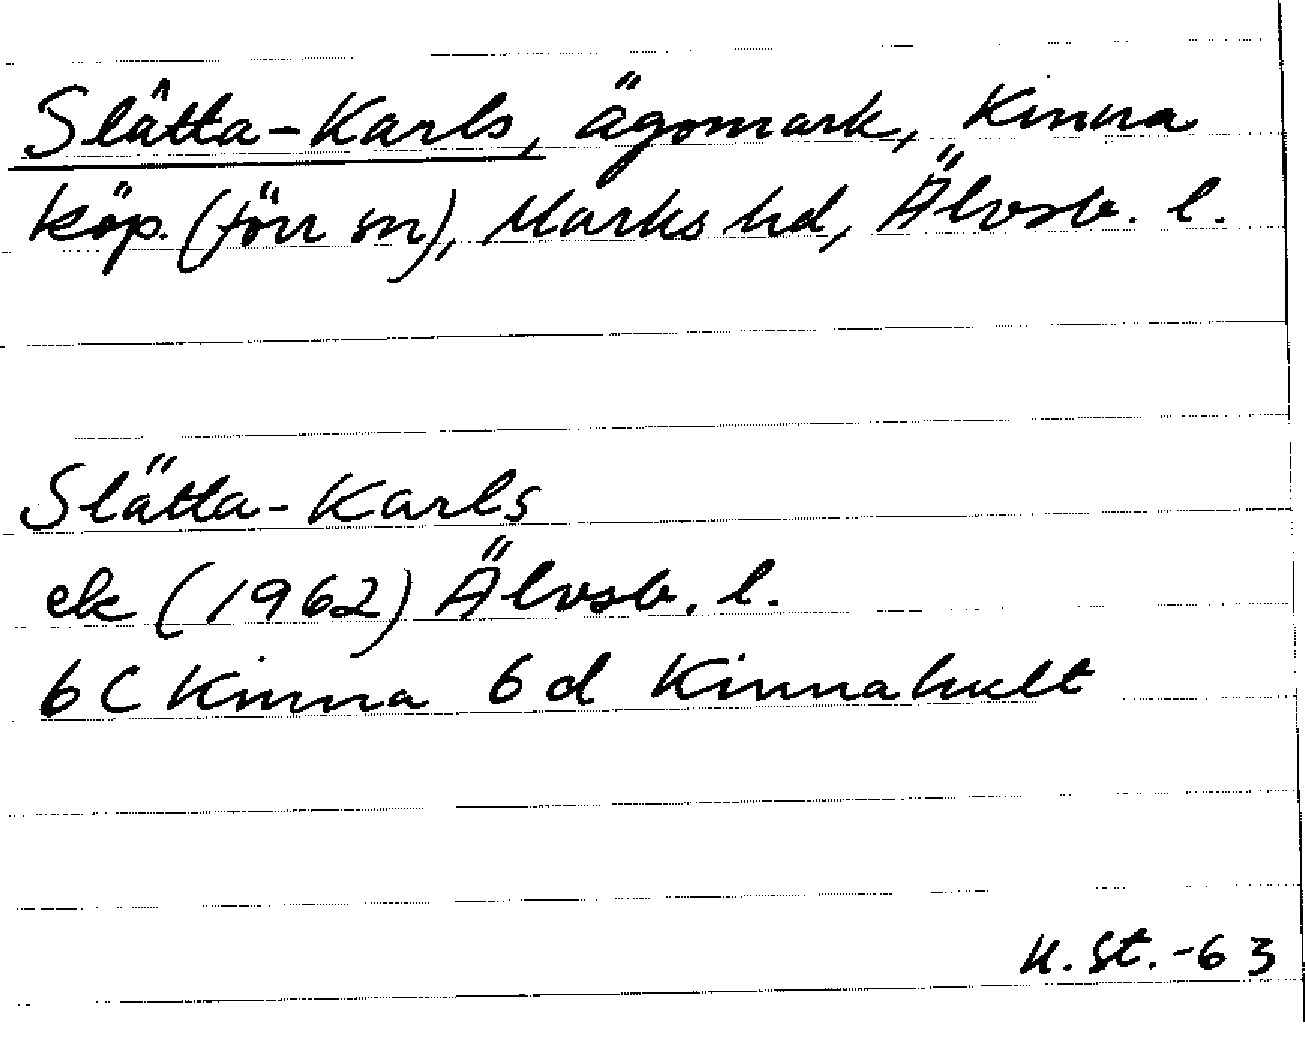 Slätta-Karls, ägomark, Kinna
köp. (förr sn), Marks hd, Älvsb. l.
Slätta-Karls
ek (1962) Älvsb. l.
6C Kinna 6d Kinnahult
K. St. -63